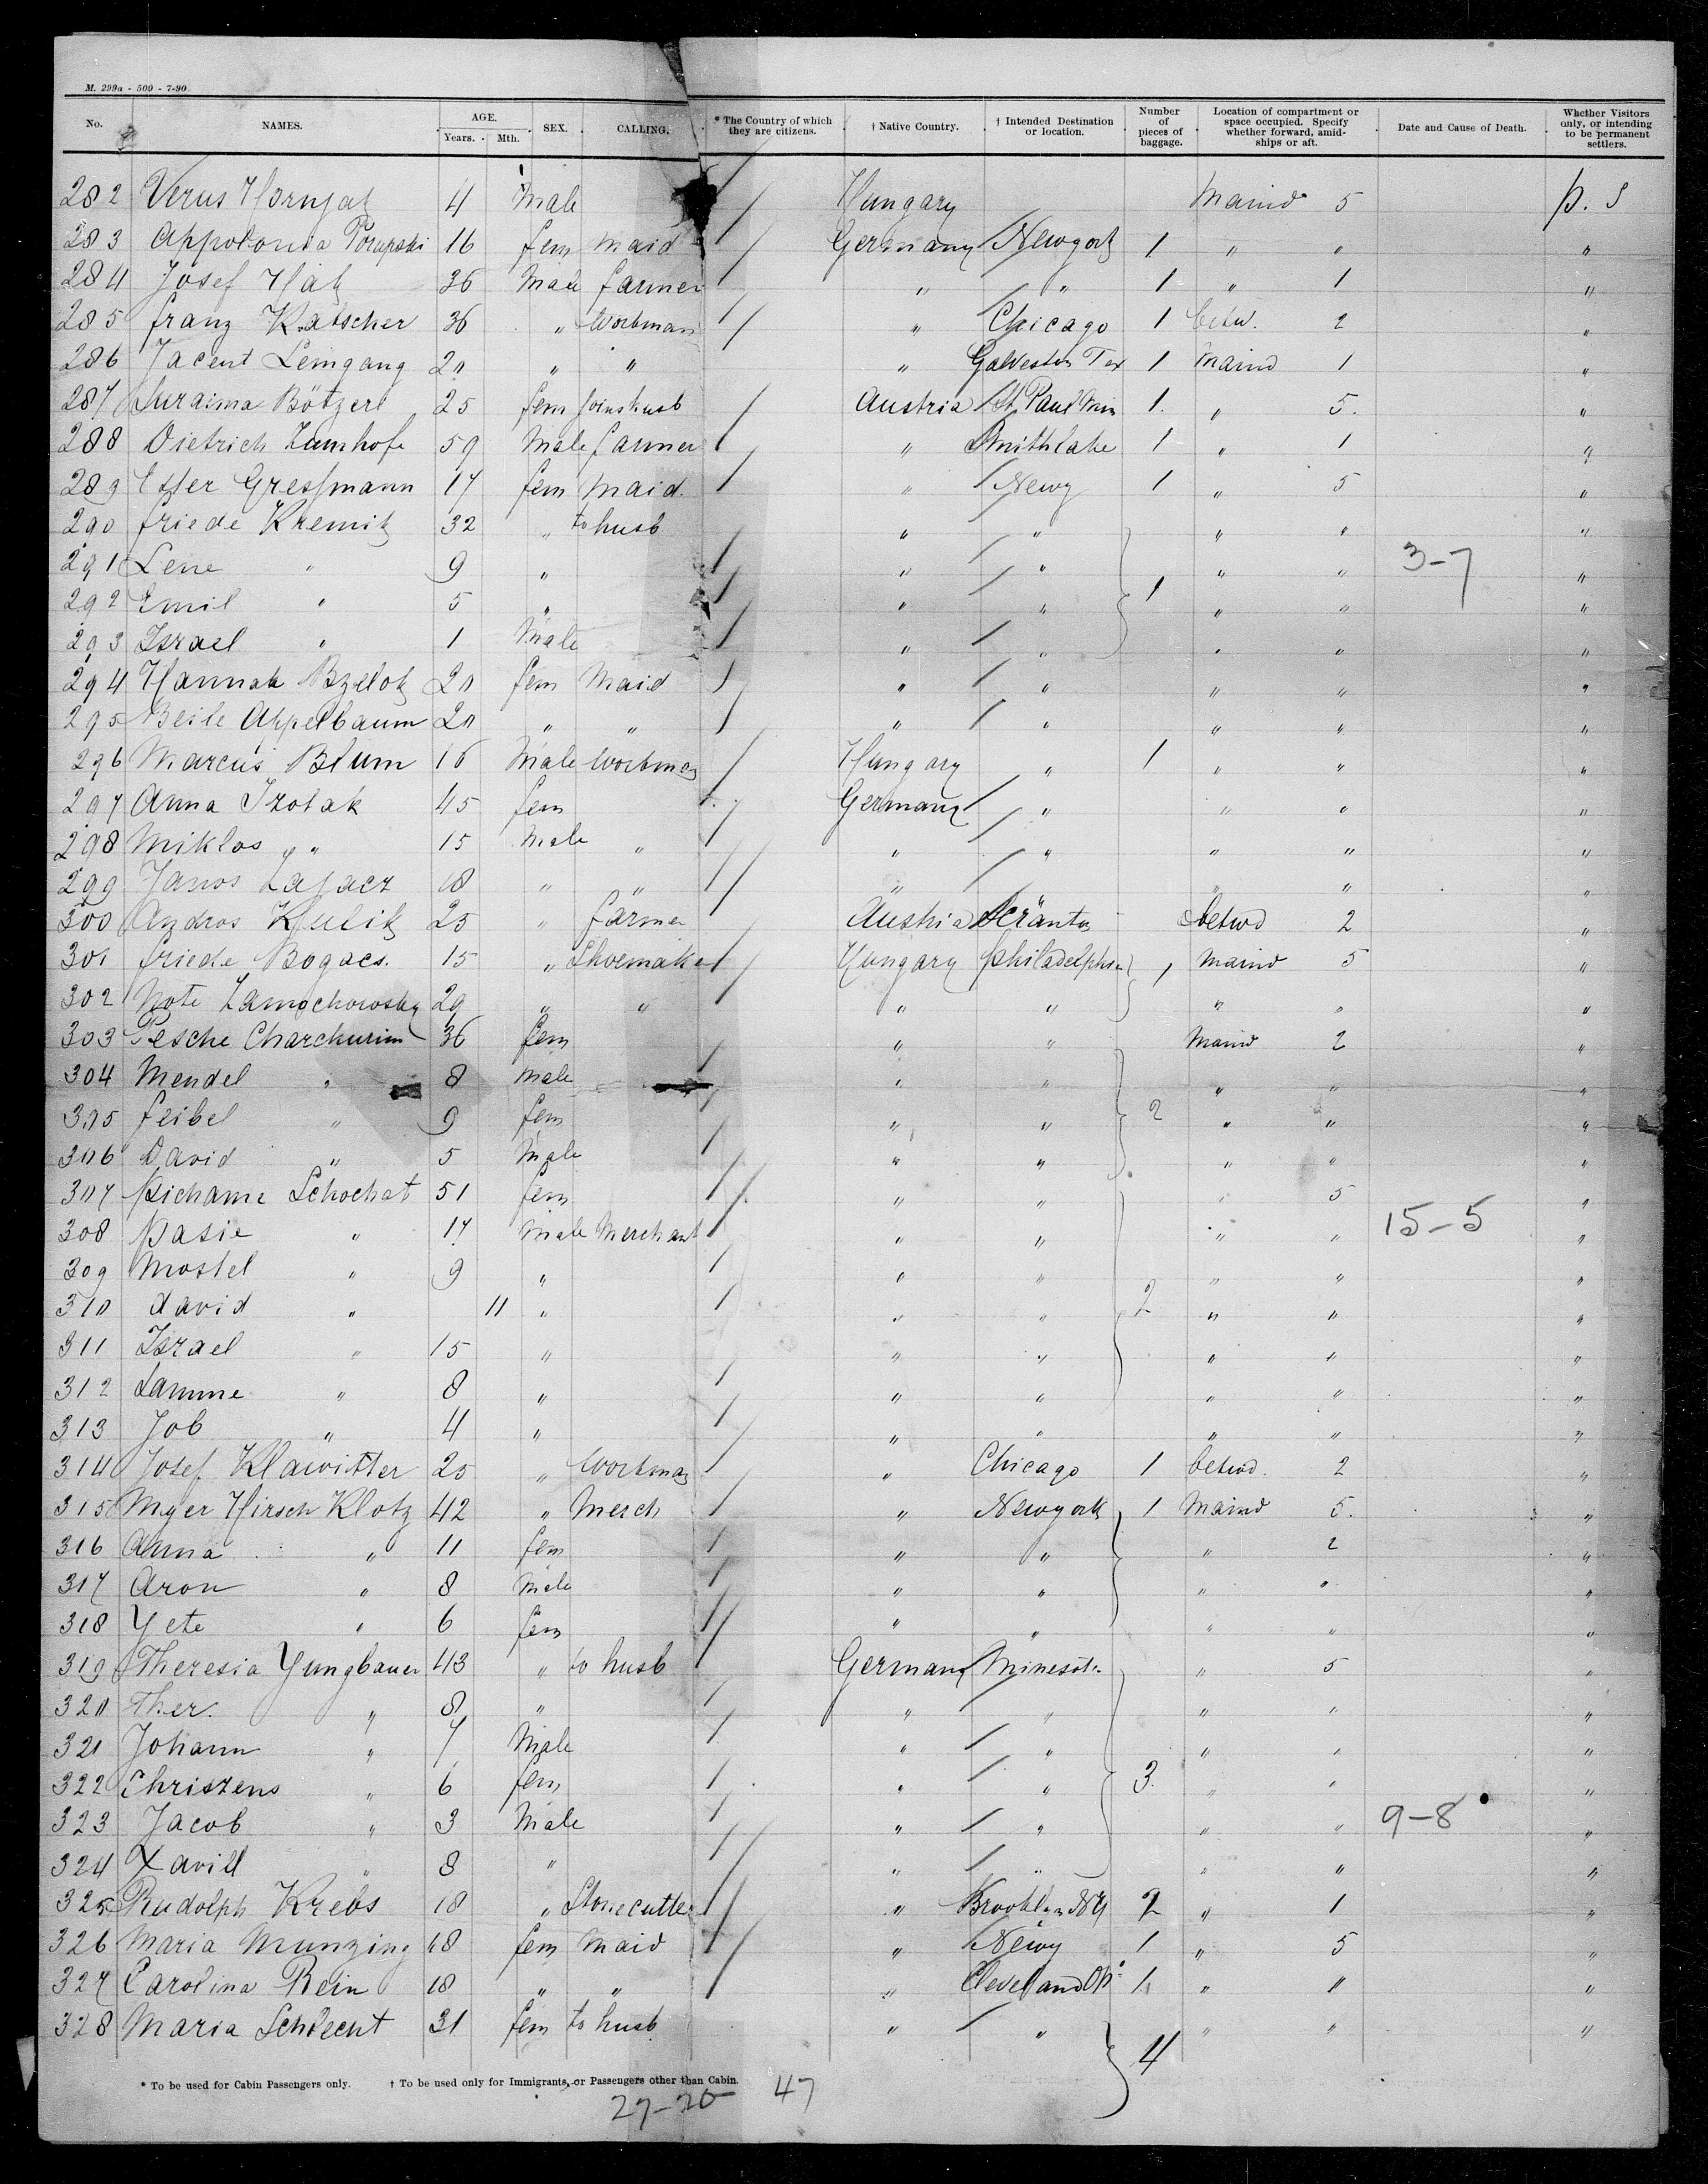 M. 299a - 500 - 7-90
No. NAMES. AGE. Years. Mth. SEX. CALLING. * The Country of which they are citizens. † Native Country. † Intended Destination or location. Number of pieces of baggage. Location of compartment or space occupied. Specify whether forward, amidships or aft. Date and Cause of Death. Whether Visitors only, or intending to be permanent settlers.
282 Verus Hornjak 4 Male Hungary Maind 5 p. S
283 Appolonia Porupski 16 fem Maid Germany Newyork 1 " " "
284 Josef Hak 36 Male farmer " " 1 " 1 "
285 franz Katscher 36 " Workman " Chicago 1 betw. 2 "
286 Jacent Lemgang 20 " " " Galveston Tex 1 Maind 1 "
287 Bötzerl 25 fem joins husb Austria St Paul Min 1. " 5. "
288 Dietrich Zumhofe 59 Male farmer " Smithlake 1 " 1 "
289 Ester Gressmann 17 fem Maid. " Newy 1 " 5 "
290 friede Kremitz 32 " to husb " " " " "
291 Lene " 9 " " " " " 3-7 "
292 Emil " 5 " " " 1 " " "
293 Israel " 1 Male " " " " "
294 Hannah Bzelok 20 fem Maid " " " " "
295 Beile Appelbaum 20 " " " " " " "
296 Marcus Blum 16 Male Workman Hungary " 1 " " "
297 Anna Izolak 45 fem Germany " " " "
298 Miklos " 15 Male " " " " " "
299 Janos Lajacz 18 " " " " " " "
300 Andros Kulik 25 " farmer Austria Scranton betwd 2 "
301 friede Bogacs. 15 " Shoemaker Hungary philadelphia 1 Maind 5 "
302 Note Zamochowsky 29 " " " " " " "
303 Pesche Charchurim 36 fem " " Maind 2 "
304 Mendel " 8 Male " " " " "
305 feibel " 9 fem " " 2 " " "
306 David " 5 Male " " " " "
307 Schochat 51 fem " " " 5 "
308 Basie " 17 Male Merchant " " " " 15-5 "
309 Mostel " 9 " " " " " "
310 david " 11 " " " 2 " " "
311 Israel " 15 " " " " " "
312 Lamme " 8 " " " " " "
313 Job " 4 " " " " " "
314 Josef Klawitter 25 " Workman " Chicago 1 betwd. 2 "
315 Myer Hirsch Klotz 42 " Merch " Newyork 1 Maind 5. "
316 Anna " 11 fem " " " 2 "
317 Aron " 8 Male " " " " "
318 Yete " 6 fem " " " " "
319 Theresia Yungbauer 43 " to husb Germany Minesota " 5 "
320 Ther. " 8 " " " " " "
321 Johann " 7 Male " " " " "
322 Christens " 6 fem " " 3. " " "
323 Jacob " 3 Male " " " " 9-8 "
324 Xavill " 8 " " " " " "
325 Rudolph Krebs 18 " Stonecutter " Brooklyn NY 2 " 1 "
326 Maria Munzing 18 fem Maid " Newy 1 " 5 "
327 Carolina Rein 18 " " " Cleveland Oh 1 " " "
328 Maria Schlecht 31 fem to husb " " 4 " " "
* To be used for Cabin Passengers only. † To be used only for Immigrants, or Passengers other than Cabin.
27-20 47